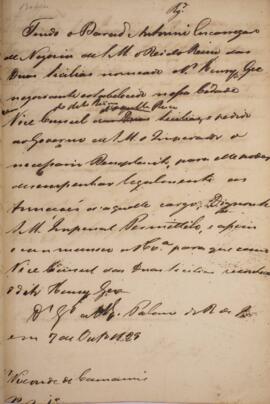 Rg.
Tendo o Barão Antonini Encarregado
de Negocios de S. M. o Rei do Reino das
Duas Sicilias nomeado o Sr. Henry Gex
negociante estabelecido nessa Cidade
Vice Consul
ao Governo de S. M. o Imperador o
necessario Beneplacito, para elle poder
desempenhar legalmente as
funcçoens d'aquelle cargo; Dignou-se
S. M. Imperial Permittilo, e assim
o communico a V. Exa. para que como
Vice Consul das Duas Sicilias reconheça
o dito Henry Gex
Ds. Gde. a V. Exa. Palacio do R. de Jro.
em 7 de Outo. 1825
Visconde de Camamú